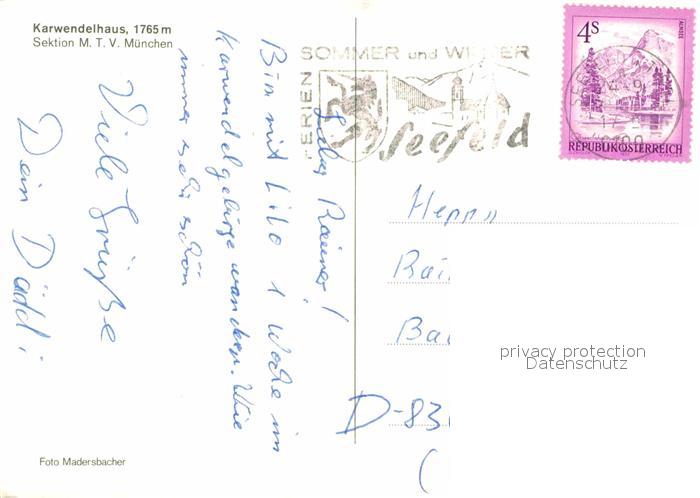 Karwendelhaus, 1765 m
Sektion M. T. V. München
Lieber Rainer!
Bin mit Lilo 1 Woche im
Karwendelgebirge wandern. Wie
immer sehr schön
Viele Grüße
Dein Däddi
Foto Madersbacher
SOMMER und WINTER
FERIEN
Seefeld
4 S
ALMSEE
REPUBLIK ÖSTERREICH
Herrn
Rai
Ba
D-83
privacy protection
Datenschutz